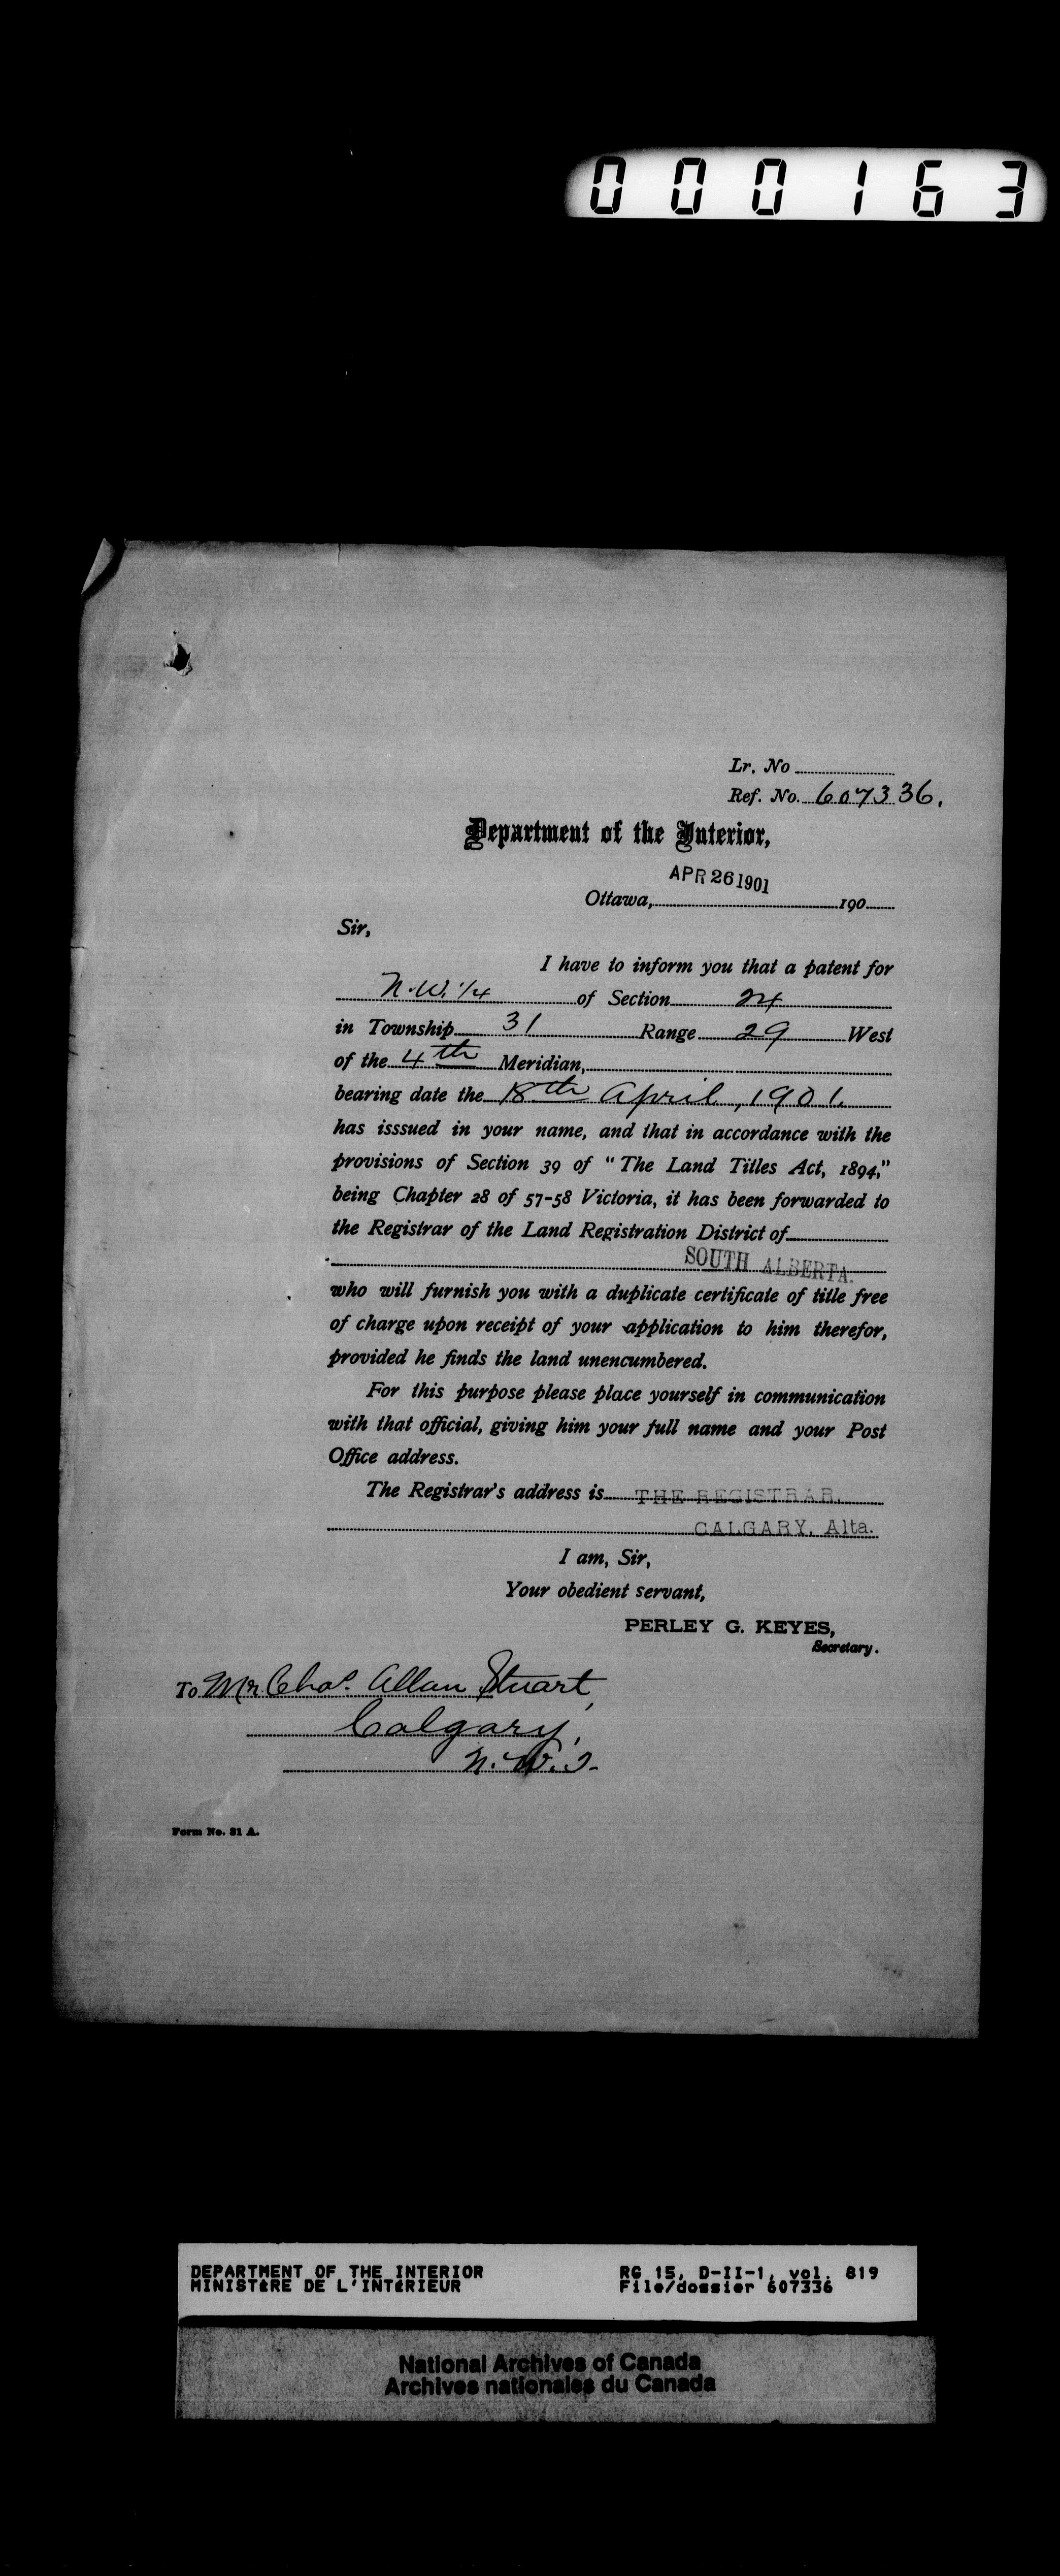 000163
Lr. No
Ref. No. 607336.
Department of the Interior,
APR 26 1901
Ottawa, 190
Sir,
I have to inform you that a patent for
N.W. 1/4 of Section 24
in Township 31 Range 29 West
of the 4th Meridian,
bearing date the 18th April, 1901.
has isssued in your name, and that in accordance with the
provisions of Section 39 of "The Land Titles Act, 1894,"
being Chapter 28 of 57-58 Victoria, it has been forwarded to
the Registrar of the Land Registration District of
SOUTH ALBERTA.
who will furnish you with a duplicate certificate of title free
of charge upon receipt of your application to him therefor,
provided he finds the land unencumbered.
For this purpose please place yourself in communication
with that official, giving him your full name and your Post
Office address.
The Registrar's address is THE REGISTRAR,
CALGARY, Alta.
I am, Sir,
Your obedient servant,
PERLEY G. KEYES,
Secretary.
To Mr Chas. Allan Stuart,
Calgary,
N.W.T.
Form No. 31 A.
DEPARTMENT OF THE INTERIOR RG 15, D-II-1, vol. 819
MINISTÈRE DE L'INTÉRIEUR File/dossier 607336
National Archives of Canada
Archives nationales du Canada